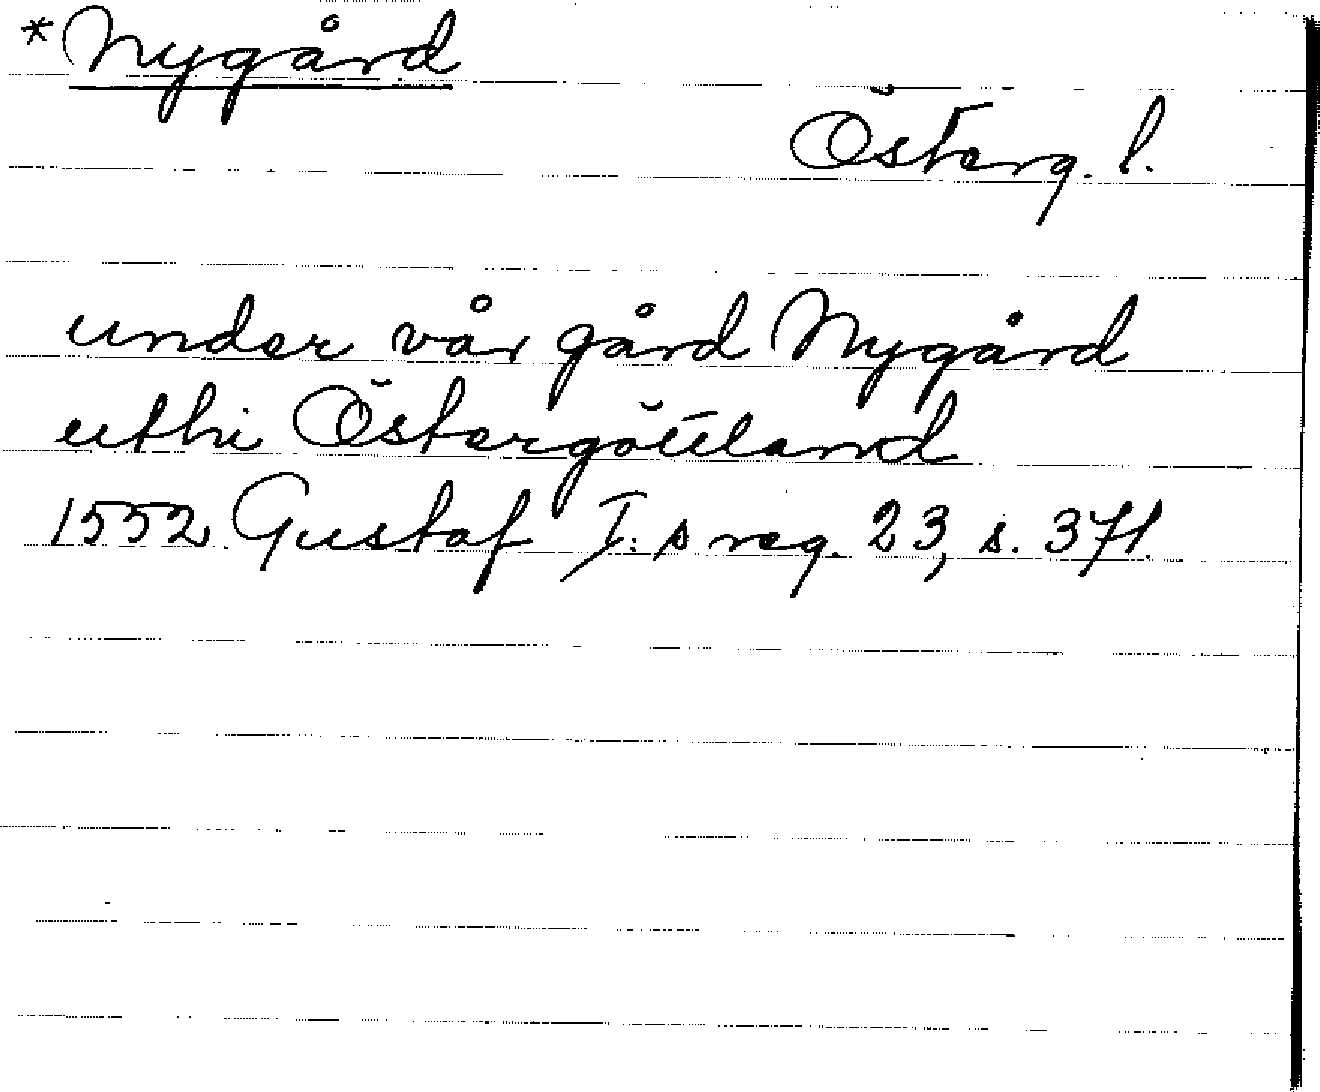 *Nygård
Österg. l.
under vår gård Nygård
uthi Östergötland
1552 Gustaf I:s reg. 23, s. 371.